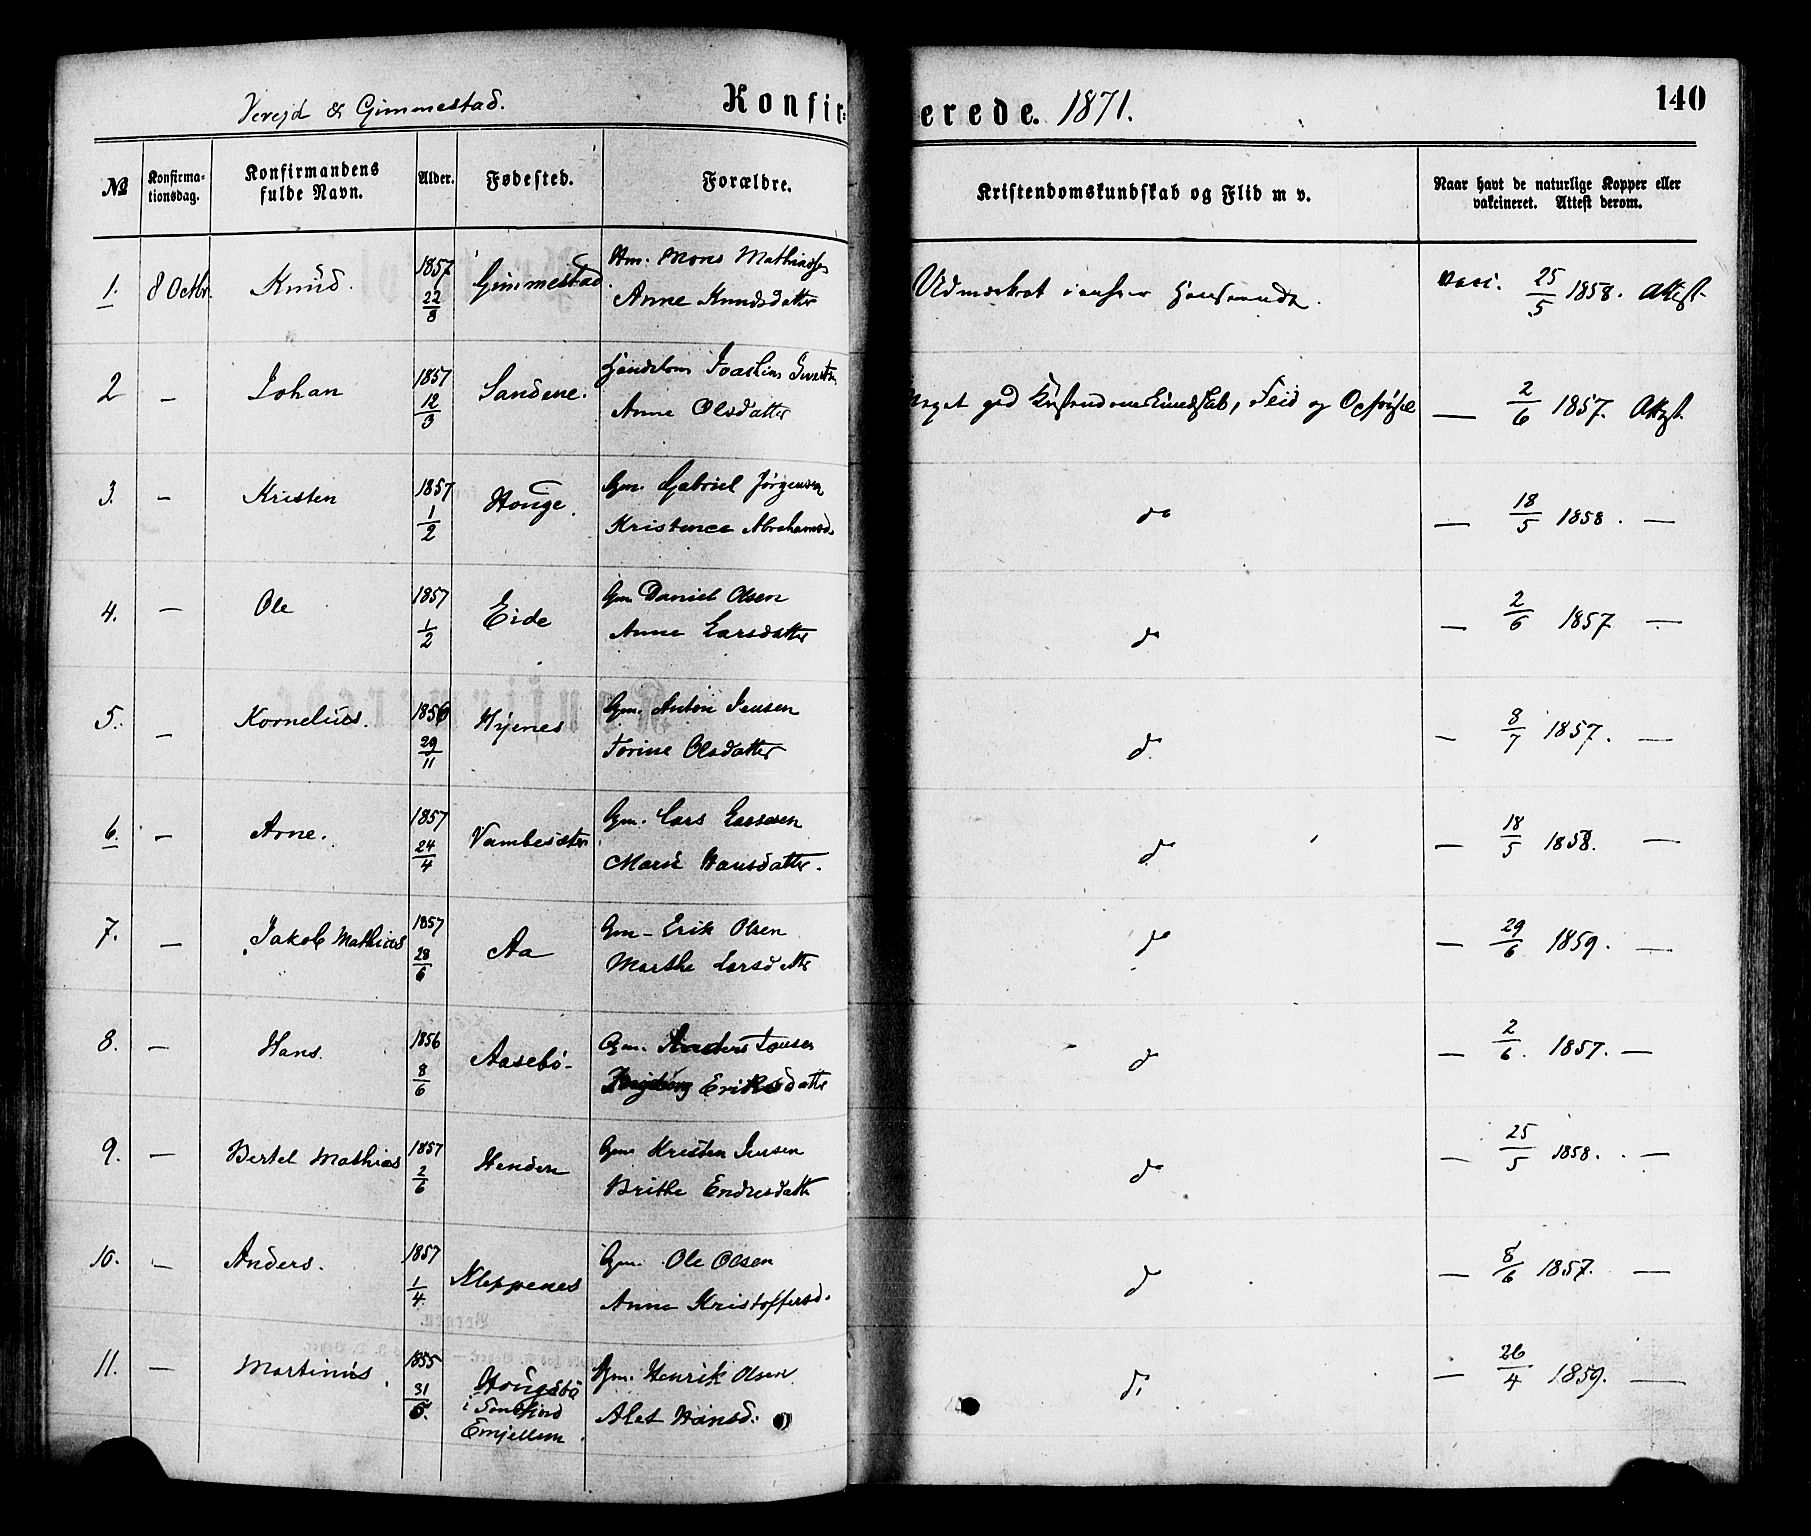 Vereid & Gimmestad. Konfir= erede. 1871. 140
No Konfirma-tionsdag. Konfirmandens fulde Navn. Alder. Fødested. Forældre. Kristendomskundskab og Flid m v. Naar havt de naturlige Kopper eller vakcineret. Attest derom.
1. 8 Octbr. Knud. 1857 22/8 Gimmestad Hm. Mons Mathiass. vacc. 25/5 1858. Attest
Anne Knudsdatter
2 – Johan 1857 12/3 Sandene. Joachim — 2/6 1857. Attest.
Anne Olsdatter Meget god Kristendomskundskab, Flid og Opførsel
3. – Kristen 1857 1/2 Houge. Gm. Gabriel Jørgensen do — 18/5 1858. —
Kristence Abrahamsd.
4. – Ole 1857 1/2 Eide Gm. Daniel Olsen do — 2/6 1857 —
Anne Larsdatter
5. – Kornelius. 1856 29/11 Hjenes Gm. Anton Jensen d. — 8/7 1857. —
Torine Olsdatter
6. – Arne. 1857 24/4 Vambesæter Gm. Lars Larssen do — 18/5 1858. —
Marie Hansdatter.
7. – Jakob Mathias 1857 28/6 Aa Gm– Erik Olsen do — 29/6 1859. —
Marthe Larsdatte
8. – Hans. 1856 8/6 Aasebø- Gm. Anders do — 2/6. 1857. —
Ingeborg Eriksdatte
9. – Bertel Mathias 1857 2/6 Henden Gm. Kristen Jensen do — 25/5 1858. —
Brithe Endresdatte
10. – Anders. 1857 1/4. Kleppenes Gm. Ole Olsen do — 8/6 1857. —
Anne Kristoffersd.
11. – Martinus. 1855 31/5. Gm. Henrik Olsen. d. — 26/4 1859. —
Alet Hansd: